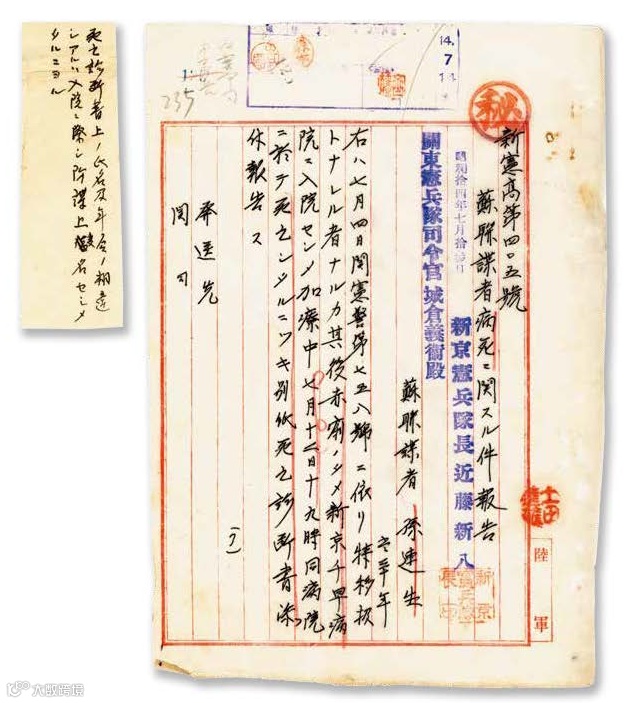 14.
7
秘
新憲高第四〇五號
蘇聯諜者病死ニ関スル件報告
昭和拾四年七月拾
新京憲兵隊長近藤新八
新京憲兵隊長印
關東憲兵隊司令官城倉義衛殿
蘇聯諜者 孫連生
右ハ七月四日関憲警第七五八號ニ依リ特移扱
トナレル者ナルカ其後赤痢ノタメ新京千早病
院ニ入院セシメ加療中七月十二日十九時同病院
ニ於テ死亡シタルニツキ別紙死亡診断書添
付報告ス
発送先
関司
(了)
陸軍
235
死亡診断書上ノ氏名及年令ノ相違
シアルハ入院ニ際シ防諜上変名セシメ
タルニヨル
大数跨境